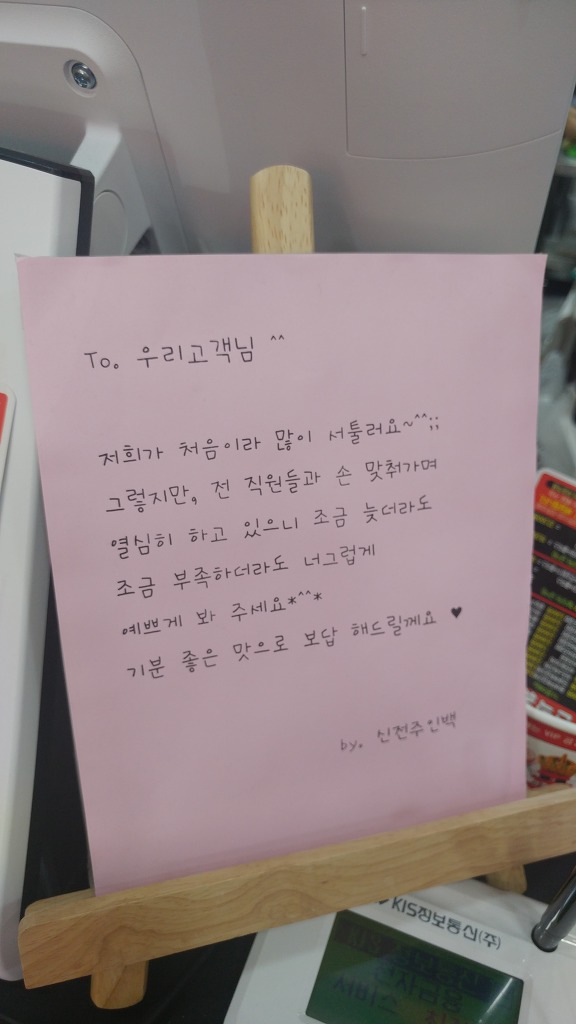 To. 우리고객님 ^^
저희가 처음이라 많이 서툴러요~^^;;
그렇지만, 전 직원들과 손 맞춰가며
열심히 하고 있으니 조금 늦더라도
조금 부족하더라도 너그럽게
예쁘게 봐 주세요*^^*
기분 좋은 맛으로 보답 해드릴께요 ♥
by. 신전주인백
KIS정보통신(주)